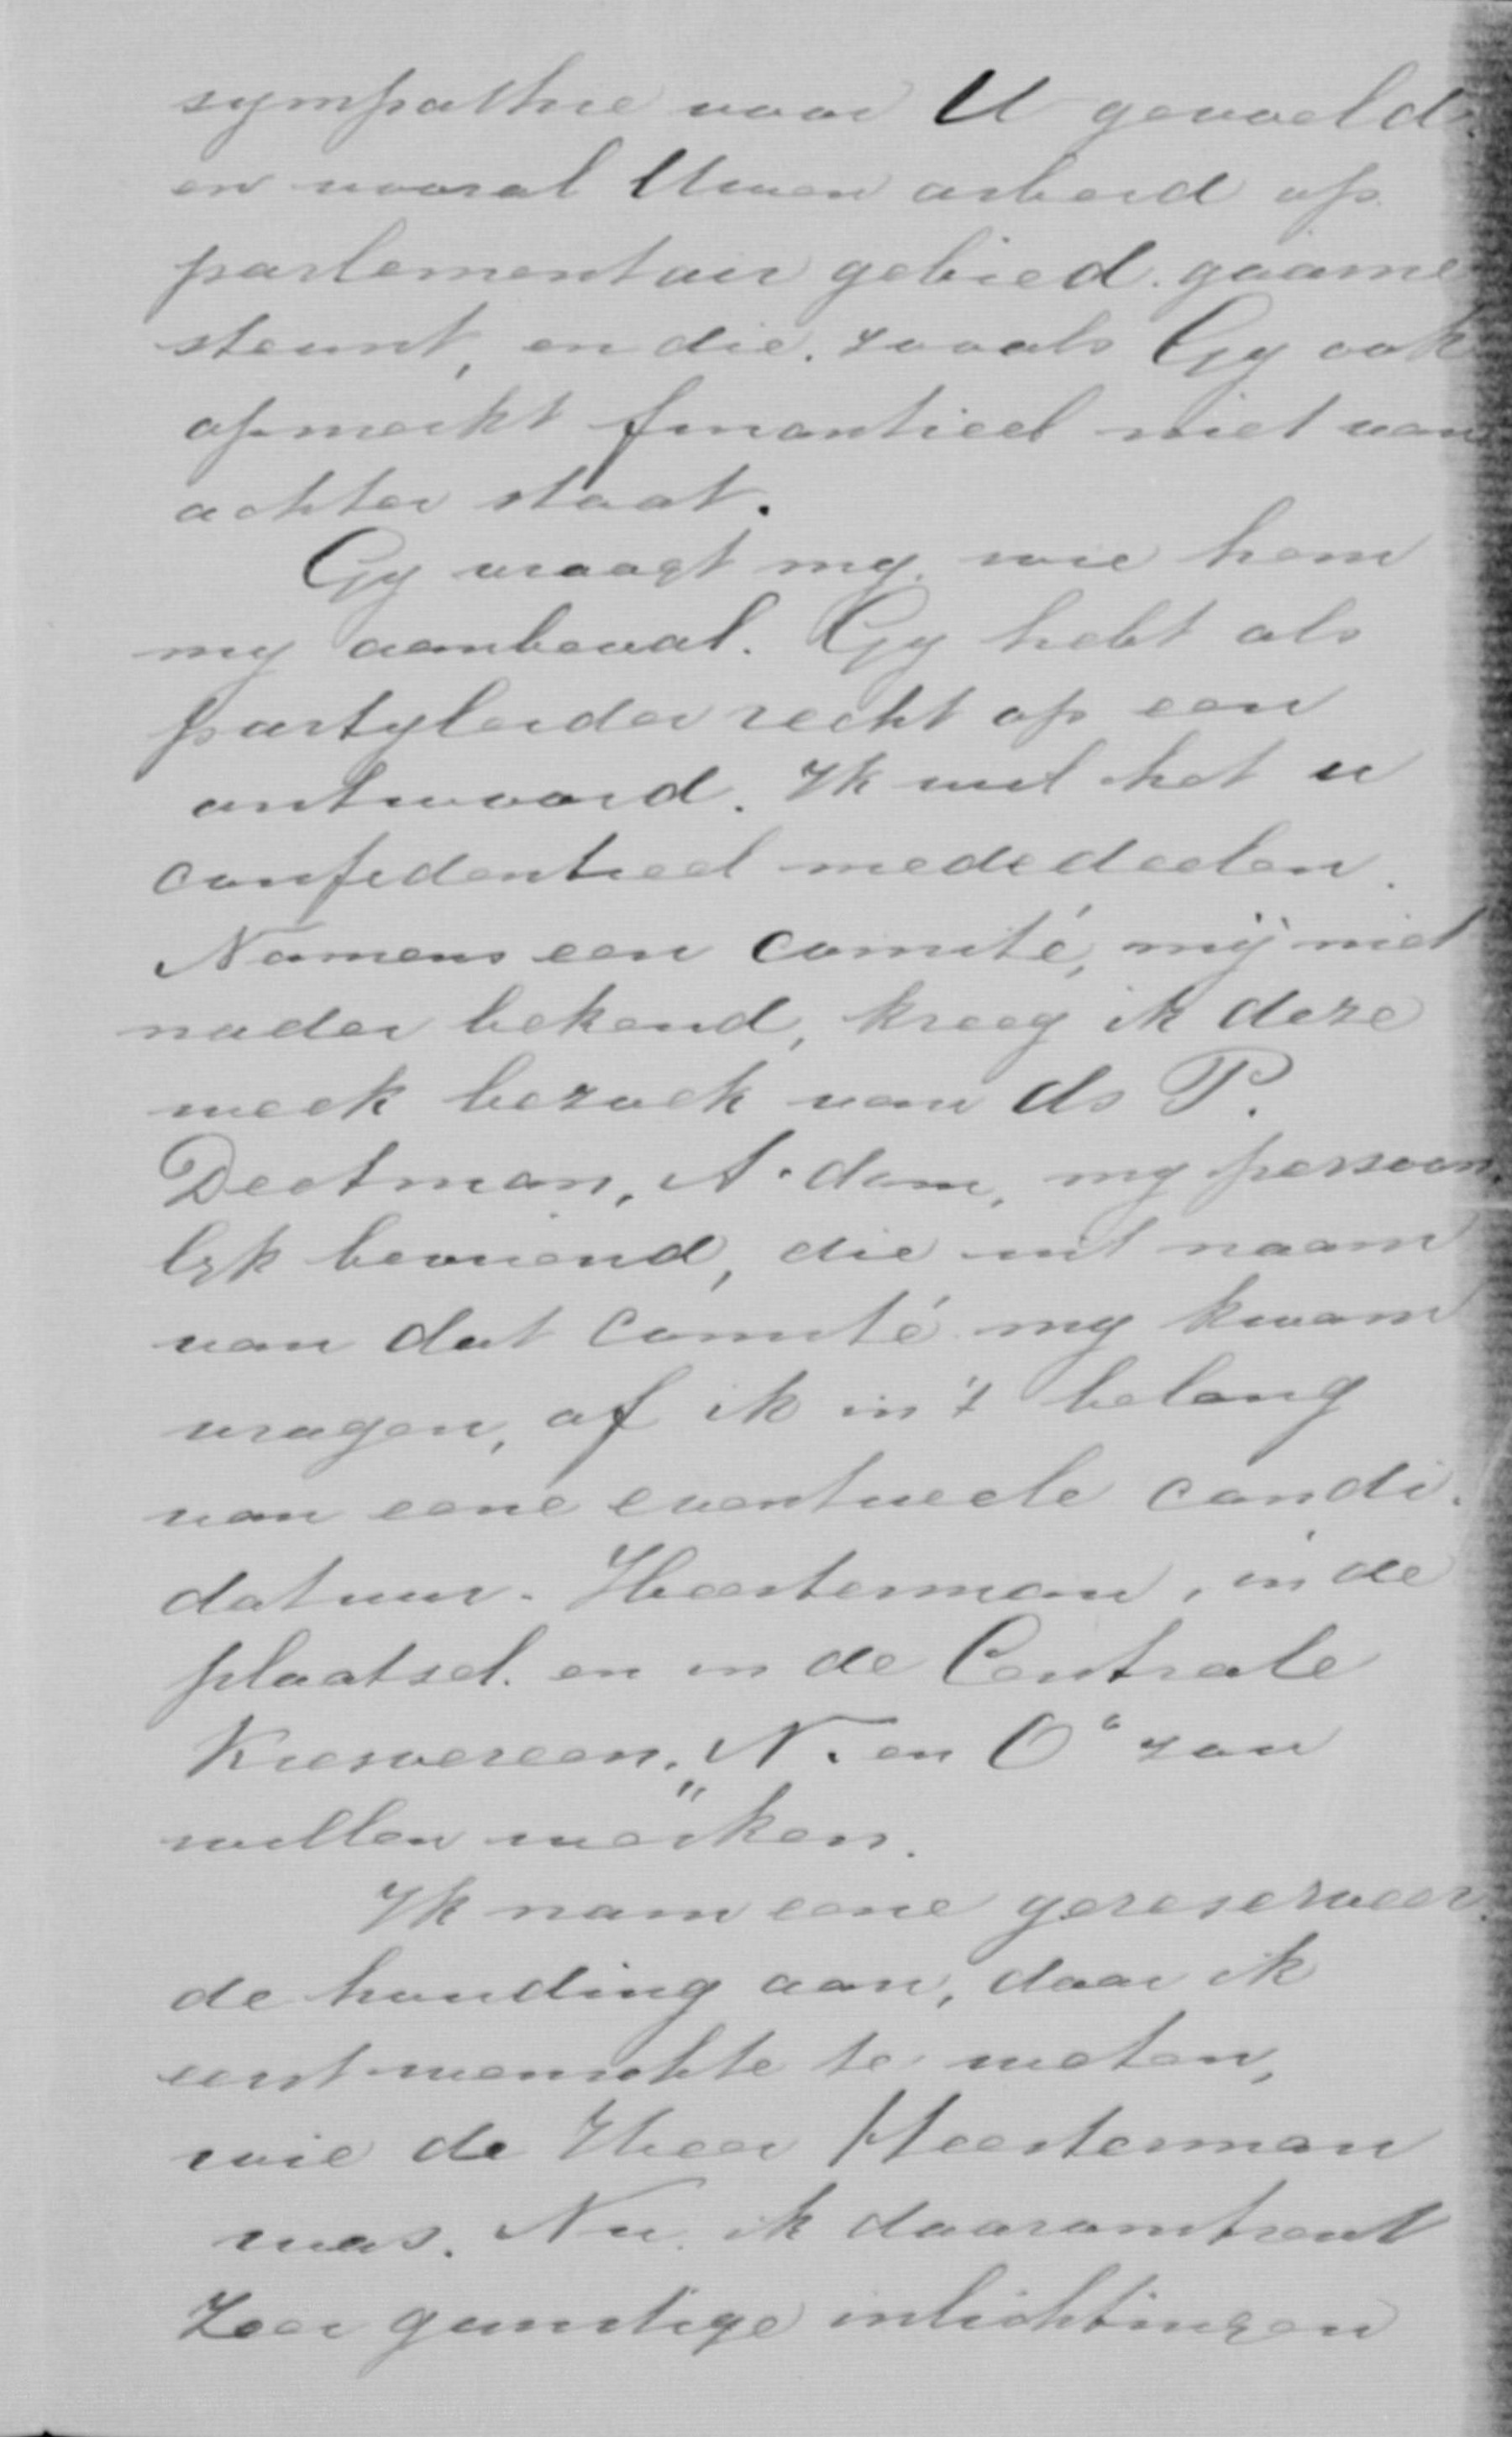 sympathie voor U gevoeld
en vooral Uwen arbeid op
parlementair gebied. gaarne
steunt, en die. zooals Gy ook
opmerkt finantieel niet van
achter staat.
Gy vraagt my, wie hem
my aanbeval. Gy hebt als
partyleider recht op een
antwoord. Ik wil het u
confidentieel mededeelen.
Namens een comité, mij niet
nader bekend, kreeg ik deze
week bezoek van ds P.
Deetman, A.dam, my persoon
lyk bevriend, die uit naam
van dat comité my kwam
vragen, of ik in 't belang
van eene eventueele candi.
datuur. Heesterman, in de
plaatsel. en in de Centrale
Kiesvereen. „N. en O“ zou
willen werken.
Ik nam eene gereserveer
de houding aan, daar ik
eerst wenschte te weten,
wie de Heer Heesterman
was. Nu ik daaromtrent
Zeer gunstige inlichtingen